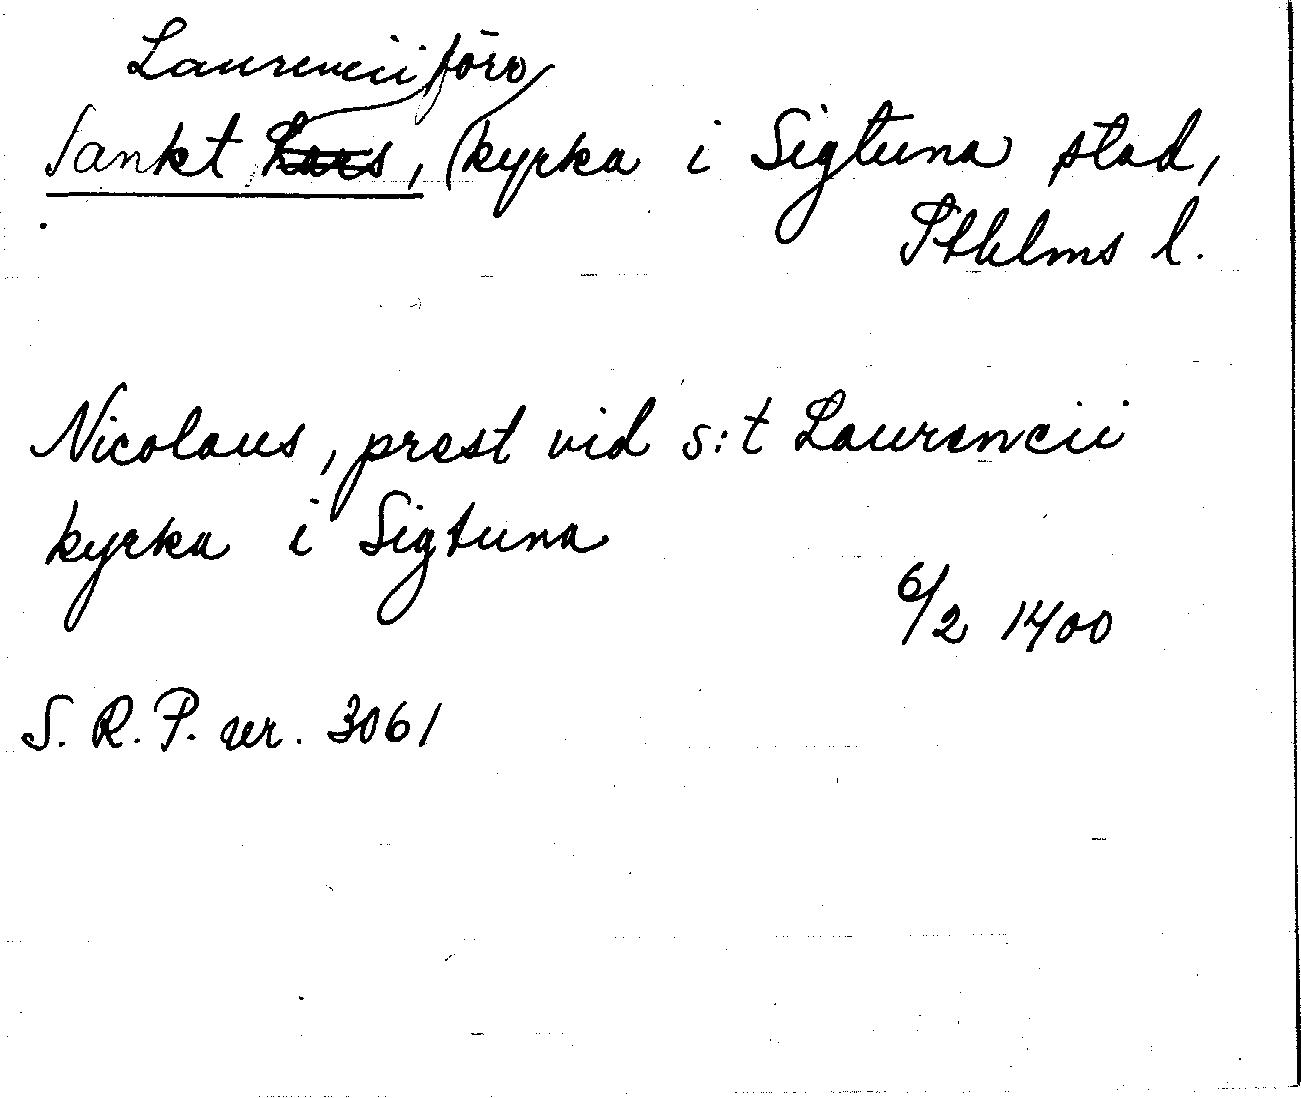 Laurencii förv
Sankt Lars, kyrka i Sigtuna stad,
Sthlms l.
Nicolaus, prest vid s:t Laurencii
kyrka i Sigtuna
6/2 1400
S. R. P. nr. 3061